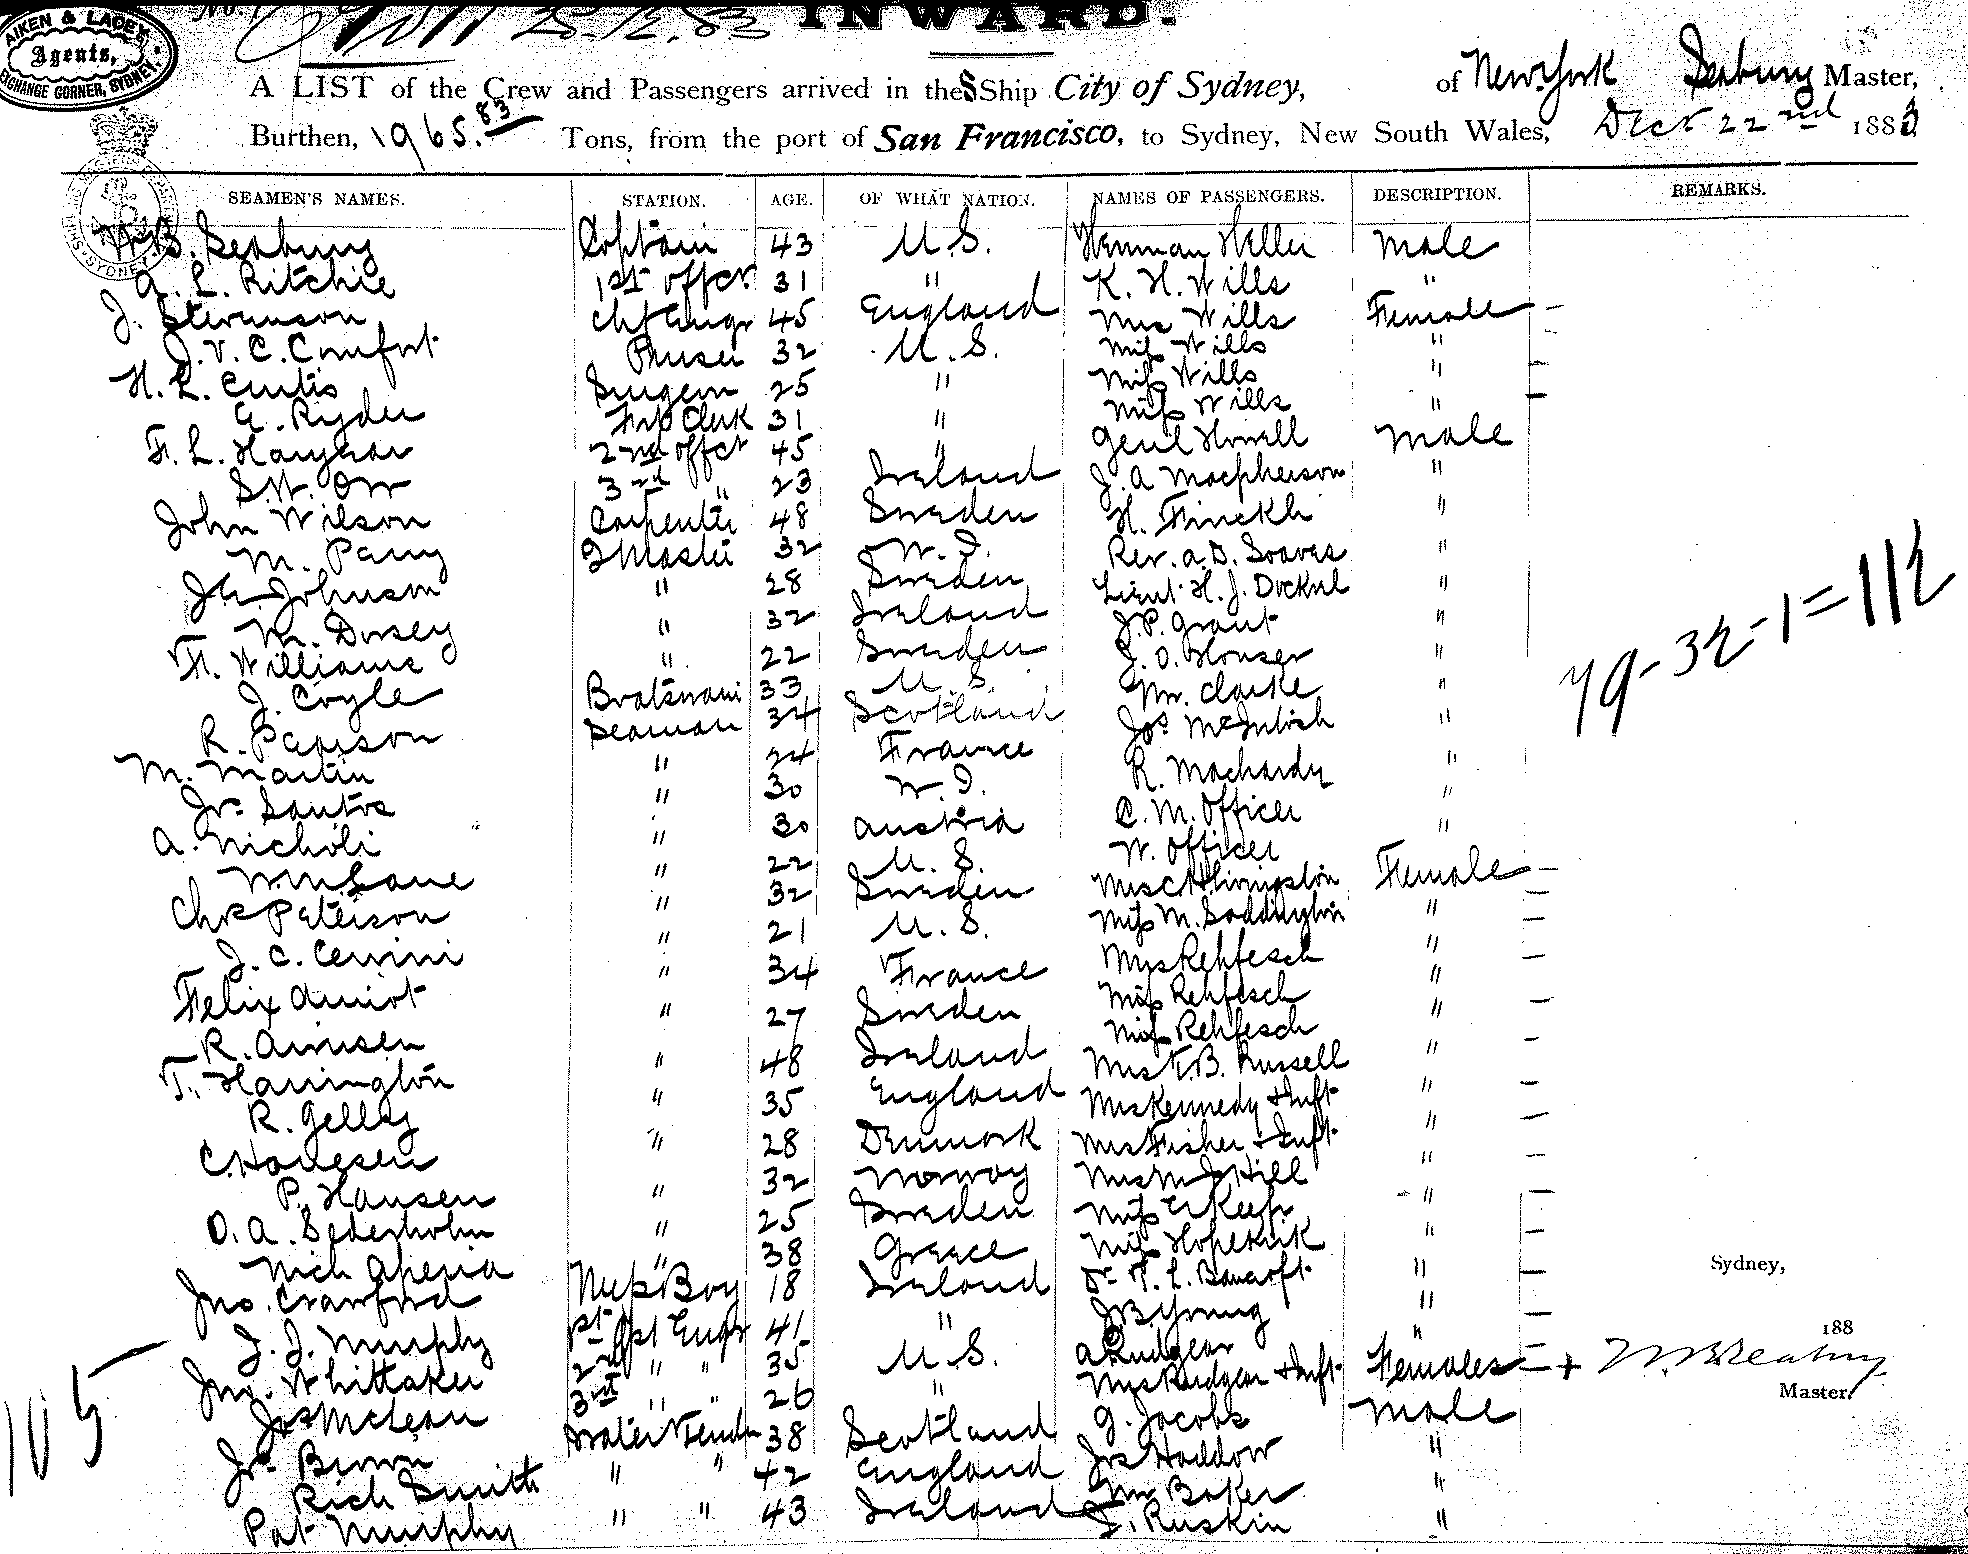 AIKEN & LACEY
Agents,
EXCHANGE CORNER, SYDNEY.
No.
INWARD.
A LIST of the Crew and Passengers arrived in the SShip City of Sydney, of New York Seabury Master,
Burthen, 1965.83 Tons, from the port of San Francisco, to Sydney, New South Wales, Decr 22nd 1883
SEAMEN'S NAMES. STATION. AGE. OF WHAT NATION. NAMES OF PASSENGERS. DESCRIPTION. REMARKS.
W.B. Seabury Captain 43 U.S. Herman Heller male
A. L. Ritchie 1st offcr 31 " K. H. Wills "
J. Stevenson chf Engr 45 England Mrs Wills Female
J.V.C. Comfort Purser 32 U.S. Miss Wills "
H. L. Curtis Surgeon 25 " Miss Wills "
G. Ryder Frt Clerk 31 " Miss Wills "
F. L. 2nd offcr 45 " Genl Howell male
S.W. Orr 3rd " 23 Ireland J. A Macpherson "
John Wilson Carpenter 48 Sweden H. Finckh "
M. Parry Q Master 32 W. I. Rev. A.D. Soares "
Jn. Johnson " 28 Sweden Lieut H. J. "
M. Dorsey " 32 Ireland J.P. Grant "
F. Williams " 22 Sweden J. O. "
J. Coyle Boatswain 33 U.S. Mr. Clarke "
R. Seaman 34 Scotland Jos McIntosh "
M. Martin " 24 France R. Machardy "
Jos Santos " 30 W. I. C. M. Officer "
A. Nicholi " 30 Austria W. Officer "
Wm Lane " 22 U.S. Mrs C H Livingston Female
Chr Peterson " 32 Sweden Miss M. Soddington "
J. C. " 21 U.S. Mrs Rehfesch "
Felix Amiot " 34 France Miss Rehfesch "
R. " 27 Sweden Miss Rehfesch "
T. Harrington " 48 Ireland Mrs T.B. Russell "
R. " 35 England Mrs Kennedy & Inft "
C. " 28 Denmark Mrs Fisher & Inft "
P. Hansen " 32 Norway Mrs M J Hill "
O. A. Sederholm " 25 Sweden Miss "
Nich " 38 Greece Miss Hopekirk "
Jno. Crawford Mess Boy 18 Ireland Dr T. L. Bancroft "
J. J. Murphy 1st Asst Engr 41 " J B. Young "
Jno. Whittaker 2nd " " 35 U.S. A Rudgear "
Jas McLean 3rd " " 26 " Mrs Rudgear & Inft Females +
Jos Brown Water Tender 38 Scotland G. Jacobs male
Rich Smith " " 42 England Jos Haddow "
Pat Murphy " " 43 Ireland Mr Baker "
J. Ruskin "
79-32-1=112
105
Sydney,
188
W B Seabury
Master.